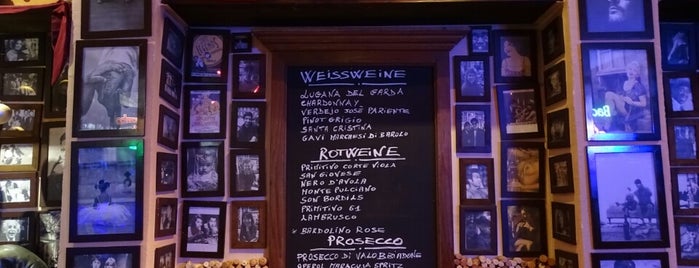 WEISSWEINE
LUGANA DEL GARDA
CHARDONNAY
VERDEJO JOSÉ PARIENTE
PINOT GRIGIO
SANTA CRISTINA
GAVI MARCHESI DI BAROLO
ROTWEINE
PRIMITIVO CORTE VIOLA
SAN GIOVESE
NERO D'AVOLA
MONTE PULCIANO
SON BORDILS
PRIMITIVO G1
LAMBRUSCO
BARDOLINO ROSE
PROSECCO
PROSECCO DI VALDOBBIADONE
APEROL MARACUJA SPRITZ